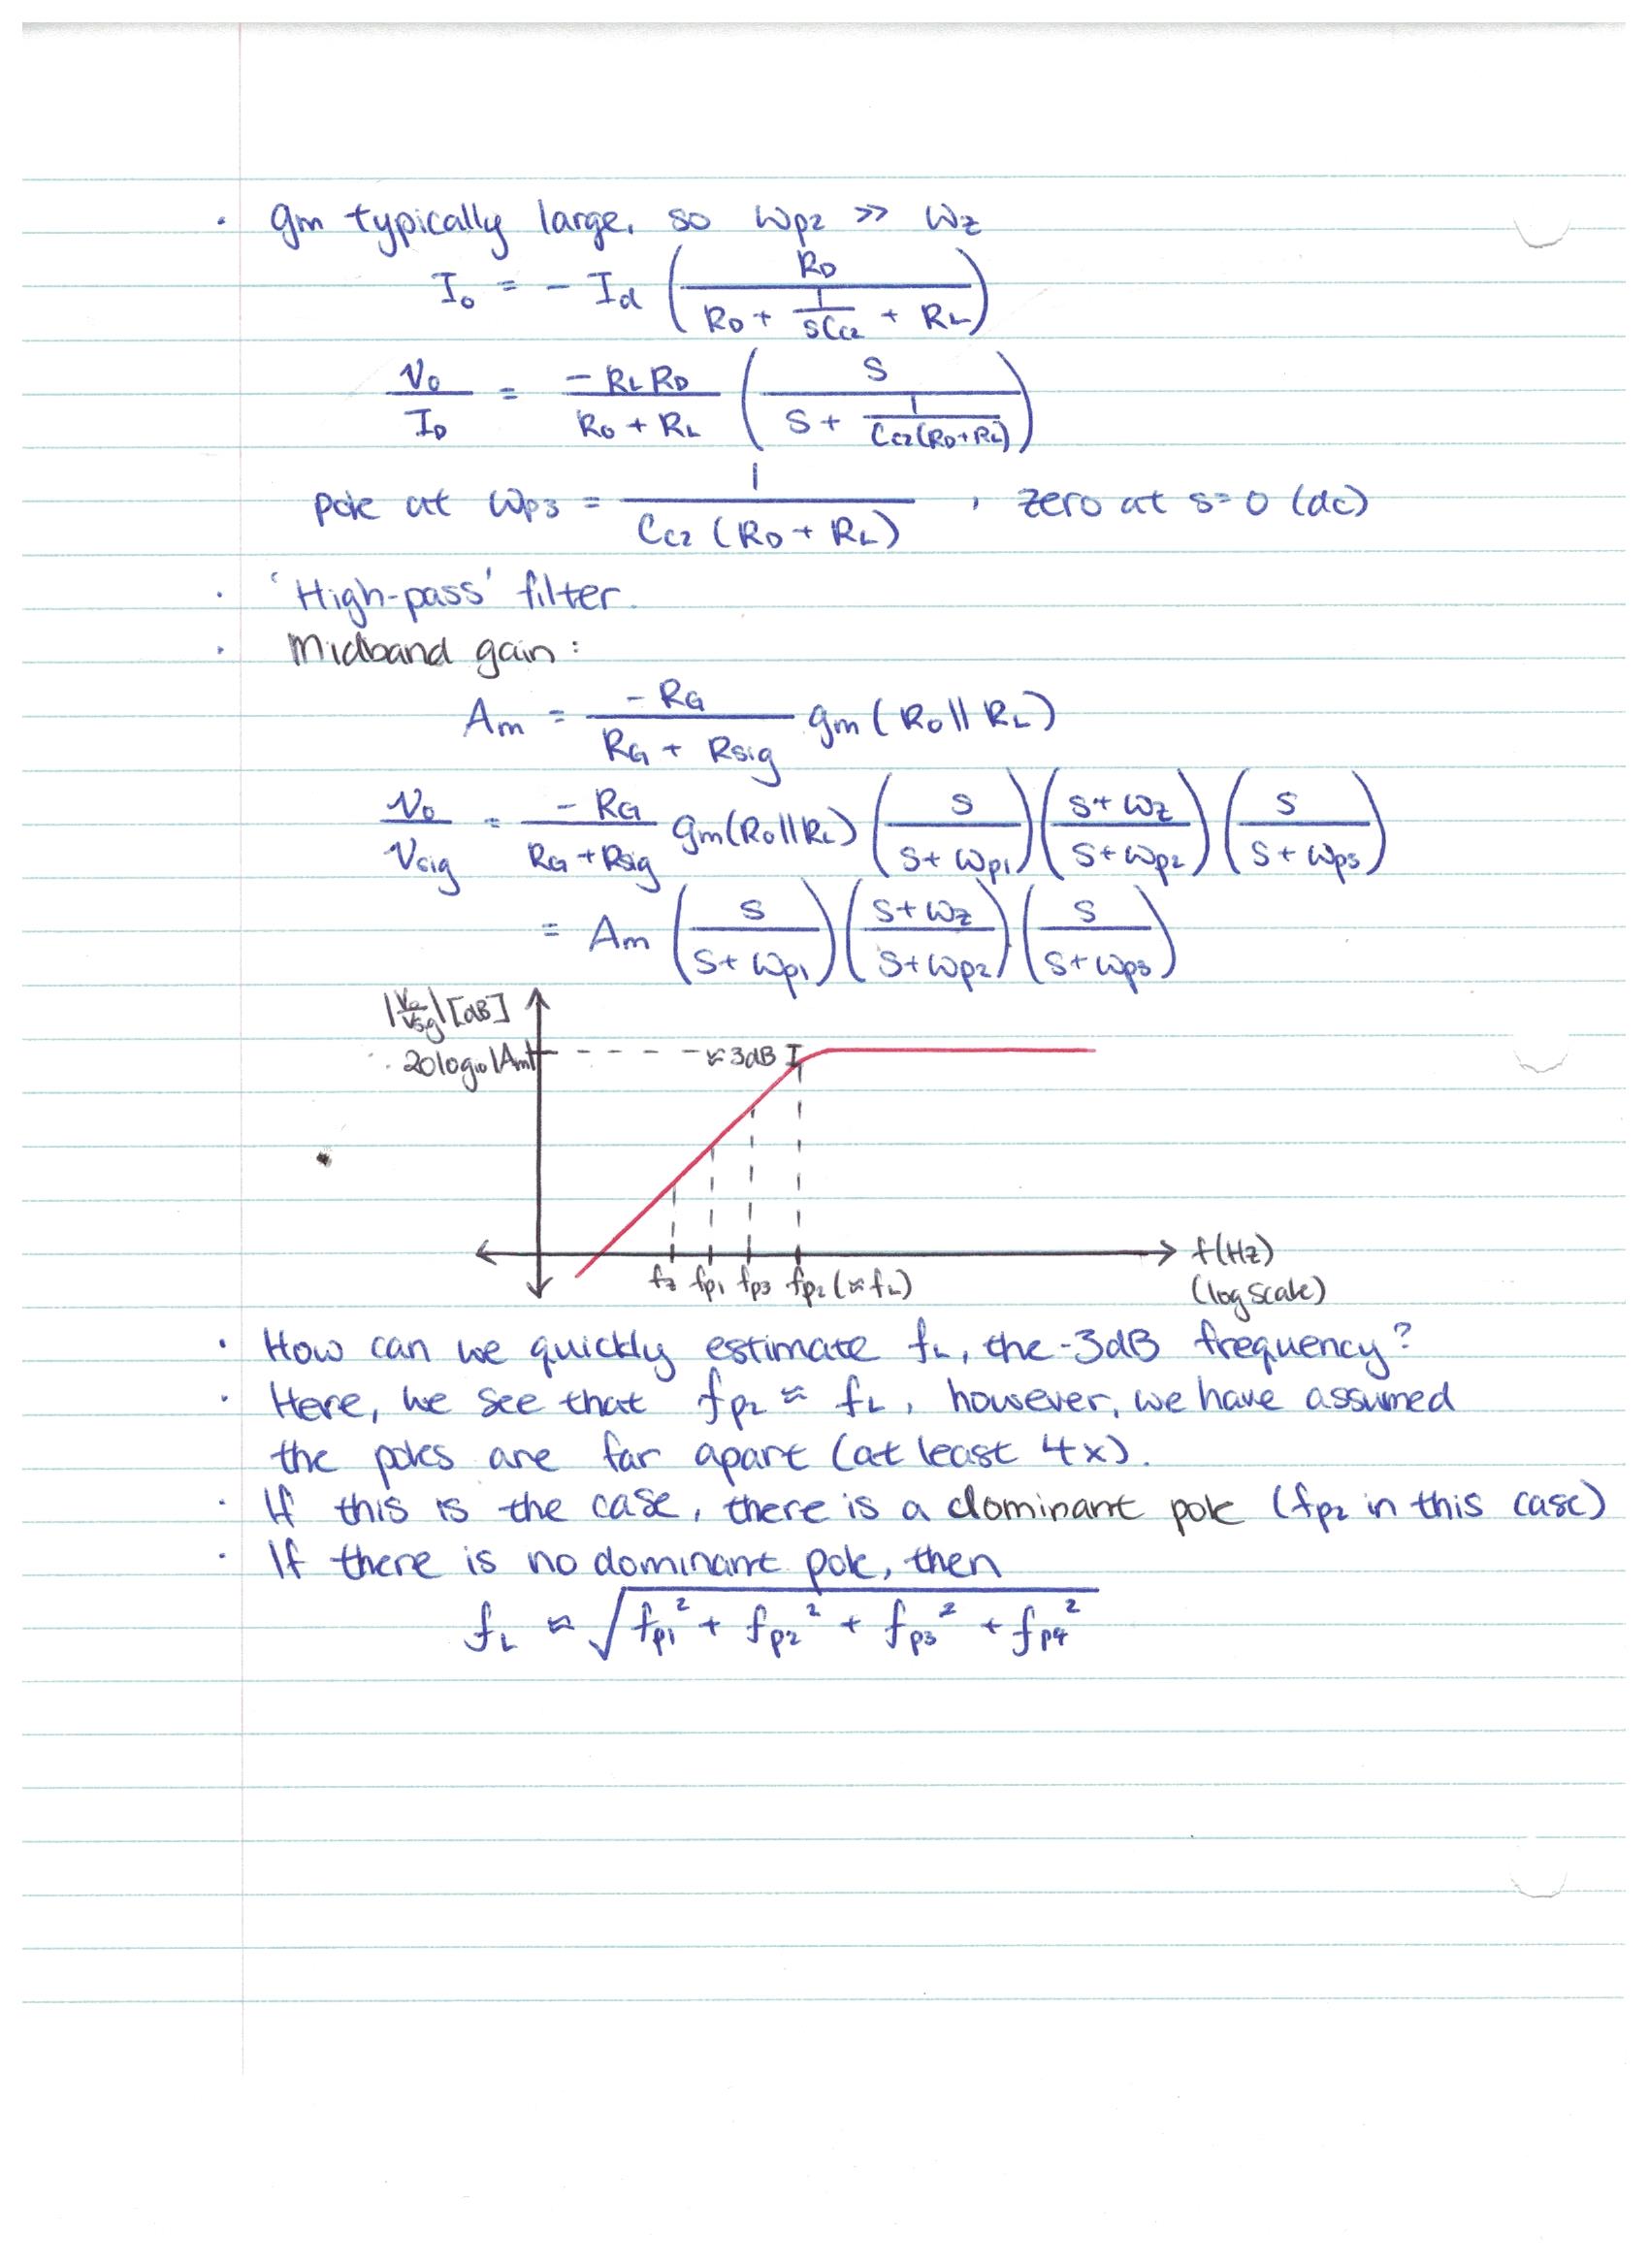 · gm typically large, so ωp2 >> ωz
Io = - Id ( RD / (RD + 1/(sCc2) + RL) )
Vo / ID = -RL RD / (RD + RL) ( s / (s + 1/(Cc2(RD+RL))) )
pole at ωp3 = 1 / (Cc2 (RD + RL)) , zero at s=0 (dc)
· 'High-pass' filter.
· Midband gain:
Am = -RG / (RG + Rsig) gm (RD || RL)
Vo / Vsig = -RG / (RG + Rsig) gm (RD || RL) ( s / (s + ωp1) ) ( (s + ωz) / (s + ωp2) ) ( s / (s + ωp3) )
= Am ( s / (s + ωp1) ) ( (s + ωz) / (s + ωp2) ) ( s / (s + ωp3) )
|Vo/Vsig| [dB]
20log10|Am| ≈3dB
fz fp1 fp3 fp2 (≈fL) f(Hz)
(log scale)
· How can we quickly estimate fL, the -3dB frequency?
· Here, we see that fp2 ≈ fL, however, we have assumed
the poles are far apart (at least 4x).
· If this is the case, there is a dominant pole (fp2 in this case)
· If there is no dominant pole, then
fL ≈ √(fp1² + fp2² + fp3² + fp4²)